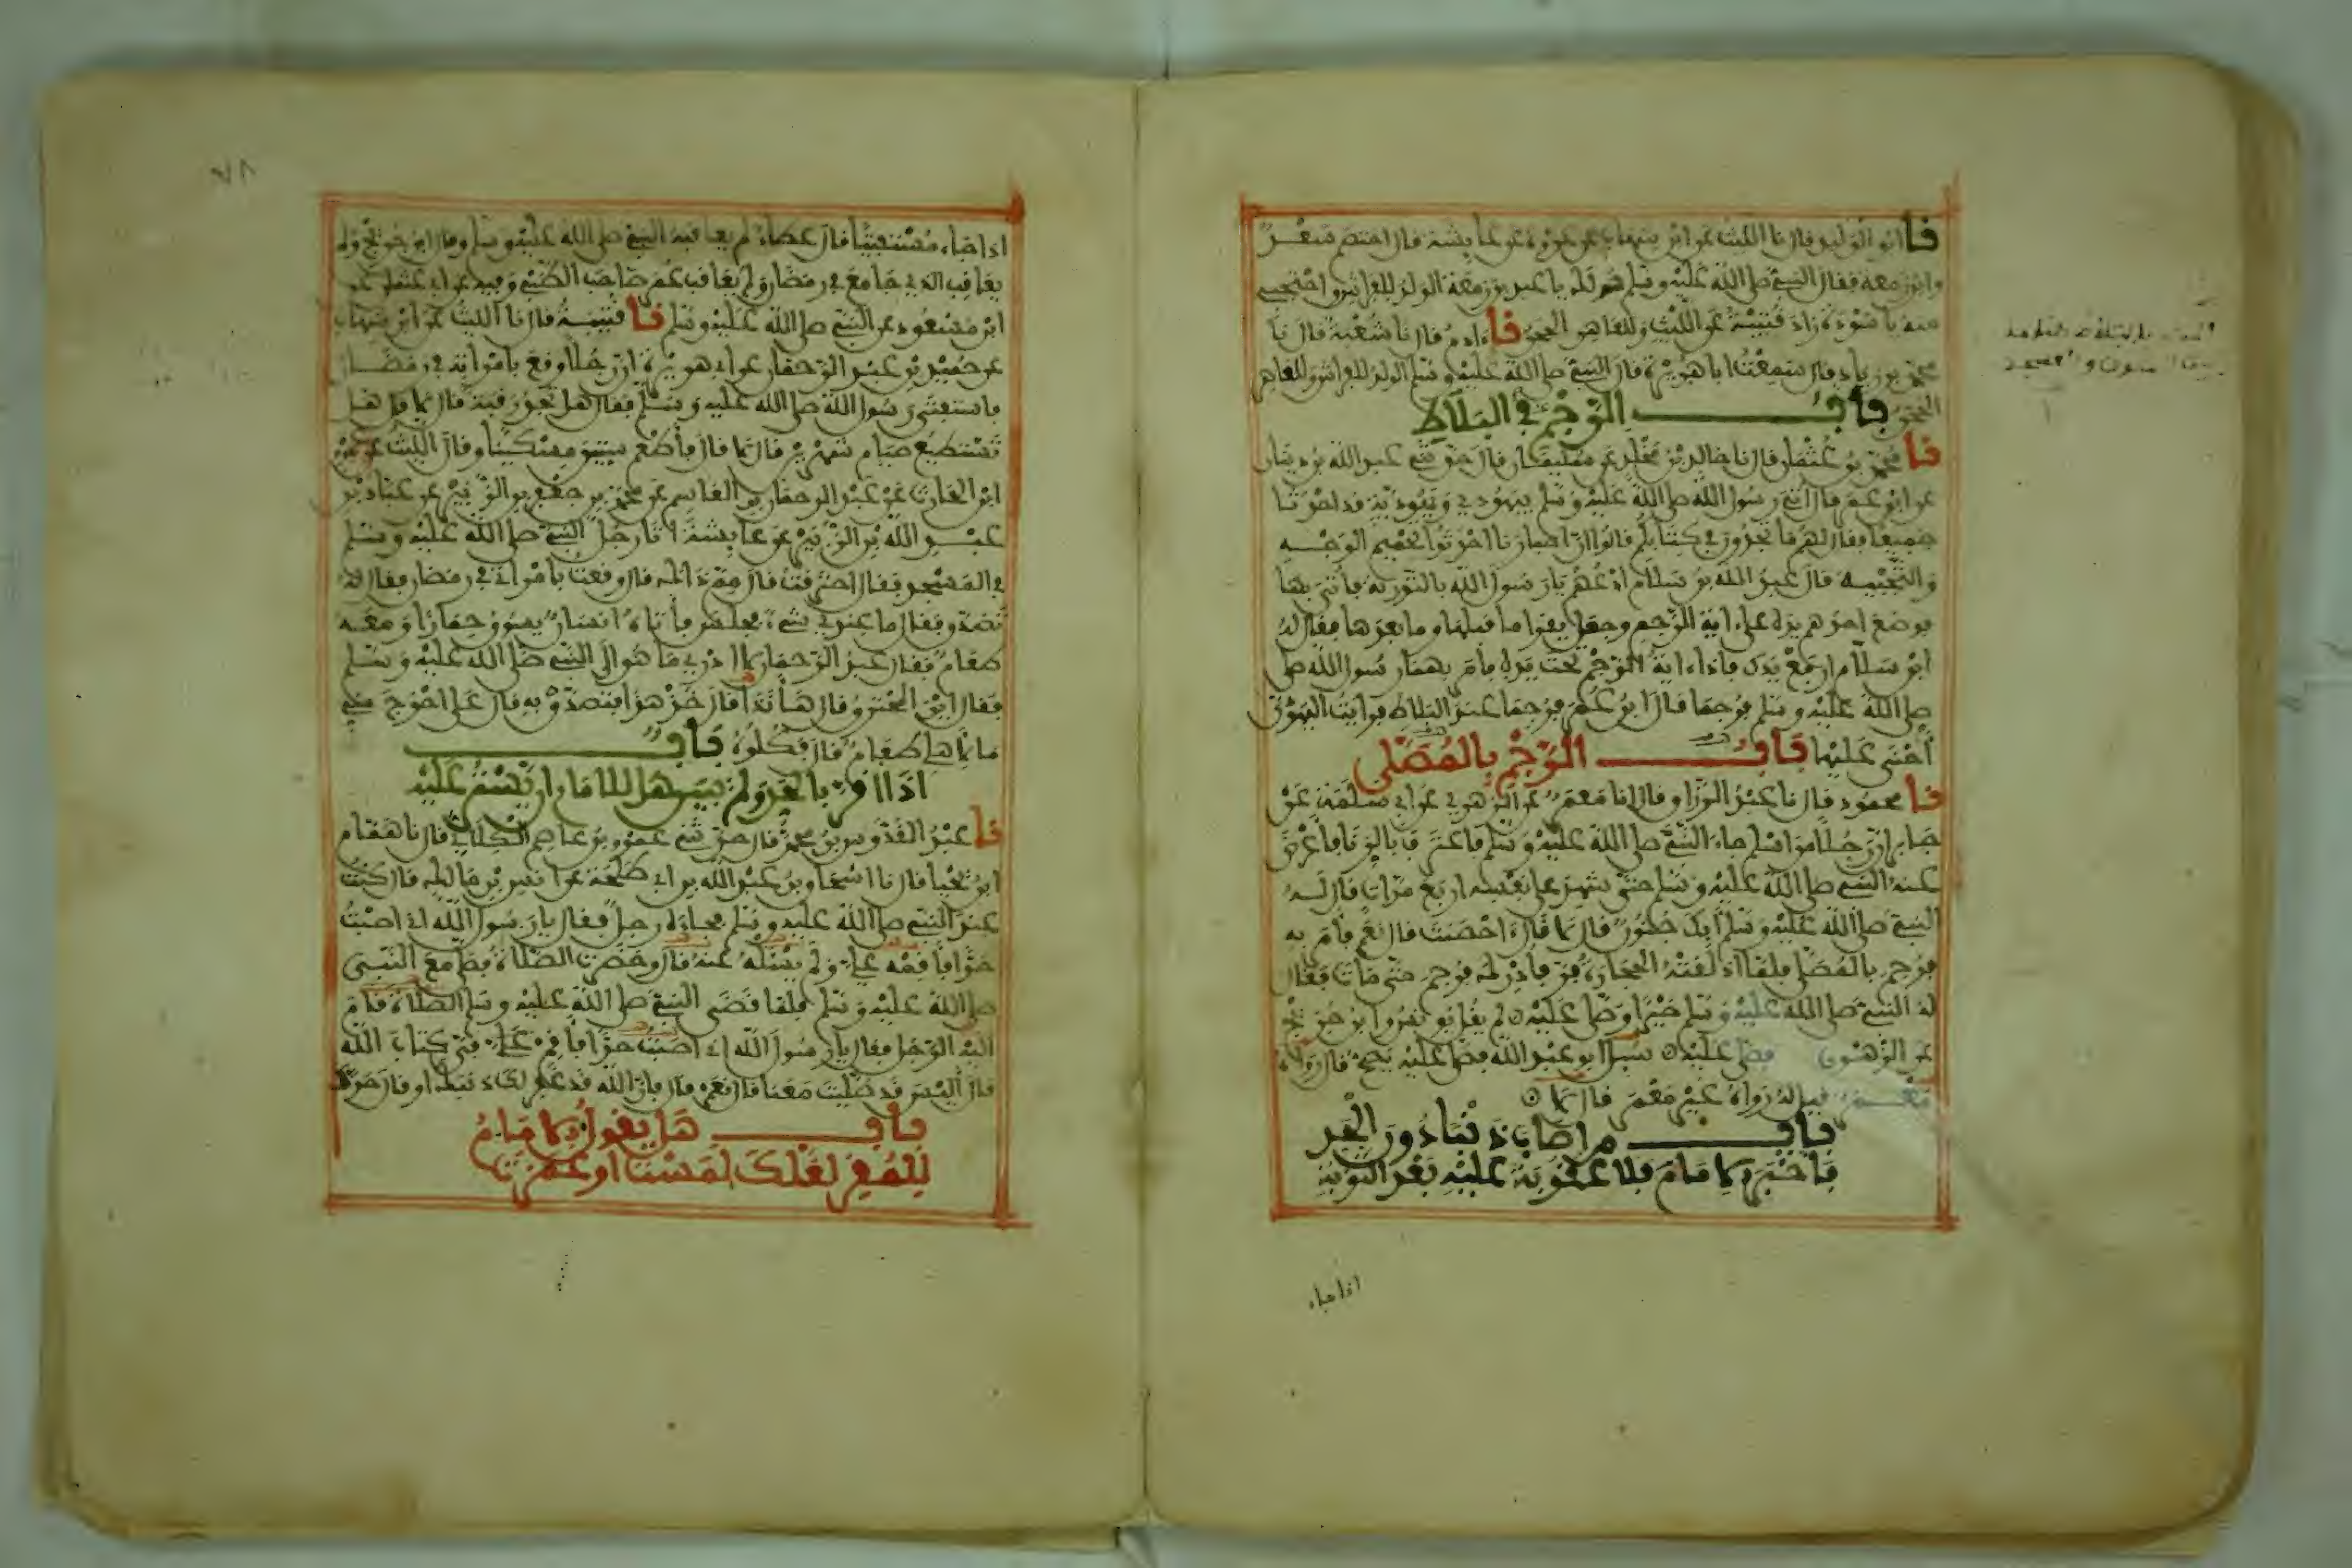 نا ابو الوليد قال نا الليث عن ابن شهاب عن عروة عن عايشة قال اختصم سعد
وابن زمعة فقال النبي صلى الله عليه وسلم هو لك يا عبد بن زمعة الولد للفراش واحتجبي
منه يا سودة زاد قتيبة عن الليث وللعاهر الحجر نا ءادم قال نا شعبة قال نا
محمد بن زياد قال سمعت ابا هريرة قال النبي صلى الله عليه وسلم الولد للفراش وللعاهر
الحجر باب الرجم في البلاط
نا محمد بن عثمان قال نا خالد بن مخلد عن سليمان قال حدثني عبد الله بن دينار
عن ابن عمر قال اتي رسول الله صلى الله عليه وسلم بيهودي ويهودية قد احدثا
جميعا فقال لهم ما تجدون في كتابكم قالوا ان احبارنا احدثوا تحميم الوجه
والتجبيه قال عبد الله بن سلام ادعهم يا رسول الله بالتورية فأتي بها
فوضع احدهم يده على ءاية الرجم وجعل يقرا ما قبلها وما بعدها فقال له
ابن سلام ارفع يدك فاذا ءاية الرجم تحت يده فأمر بهما رسول الله صلى
صلى الله عليه وسلم فرجما قال ابن عمر فرجما عند البلاط فرايت اليهودي
أحنى عليها باب الرجم بالمصلى
نا محمود قال نا عبد الرزاق قال انا معمر عن الزهري عن ابي سلمة عن
جابر ان رجلا من اسلم جاء النبي صلى الله عليه وسلم فاعترف بالزنا فأعرض
عنه النبي صلى الله عليه وسلم حتى شهد على نفسه اربع مرات قال له
النبي صلى الله عليه وسلم أبك جنون قال لا قال ءاحصنت قال نعم فأمر به
فرجم بالمصلى فلما اذلقته الحجارة فر فأدرك فرجم حتى مات فقال
له النبي صلى الله عليه وسلم خيرا وصلى عليه لم يقل يونس وابن جريج
عن الزهري فصلى عليه سيل ابو عبد الله فصلى عليه يصح قال رواه
معمر قيل له رواه غير معمر قال لا
باب من اصاب ذنبا دون الحد
فأخبر الامام فلا عقوبة عليه بعد التوبة
اذا جاء
٧٨
اذا جاء مستفتيا قال عطاء لم يعاقبه النبي صلى الله عليه وسلم وقال ابن جريج ولم
يعاقب الذي جامع في رمضان ولم يعاقب عمر صاحب الظبي وفيه عن ابي عثمان عن
ابن مسعود عن النبي صلى الله عليه وسلم نا قتيبة قال نا الليث عن ابن شهاب
عن حميد بن عبد الرحمان عن ابي هريرة ان رجلا وقع بامرأته في رمضان
فاستفتى رسول الله صلى الله عليه وسلم فقال هل تجد رقبة قال لا قال هل
تستطيع صيام شهرين قال لا قال فأطعم ستين مسكينا وقال الليث عن عمرو
ابن الحارث عن عبد الرحمان بن القاسم عن محمد بن جعفر بن الزبير عن عباد بن
عبد الله بن الزبير عن عايشة اتا رجل النبي صلى الله عليه وسلم
في المسجد فقال احترقت قال مم ذاك قال وقعت بامراتي في رمضان فقال له
تصدق فقال ما عندي شيء فجلس فأتاه انسان يسوق حمارا ومعه
طعام فقال عبد الرحمان لا ادري ما هو الى النبي صلى الله عليه وسلم
فقال اين المحترق قال ها أنا ذا قال خذ هذا فتصدق به قال على احوج مني
ما لاهلي طعام قال فكلوه باب
اذا اقر بالحد ولم يبين هل للامام ان يستر عليه
نا عبد القدوس بن محمد قال حدثني عمرو بن عاصم الكلابي قال نا همام
ابن يحيا قال نا اسحاق بن عبد الله بن ابي طلحة عن انس بن مالك قال كنت
عند النبي صلى الله عليه وسلم فجاءه رجل فقال يا رسول الله اني اصبت
حدا فأقمه علي ولم يسئله عنه قال وحضرت الصلاة فصلى مع النبي
صلى الله عليه وسلم فلما قضى النبي صلى الله عليه وسلم الصلاة قام
اليه الرجل فقال يا رسول الله اني اصبت حدا فأقم علي كتاب الله
قال أليس قد صليت معنا قال نعم قال فان الله قد غفر لك ذنبك او قال حدك
باب هل يقول الامام
للمقر لعلك لمست او غمزت